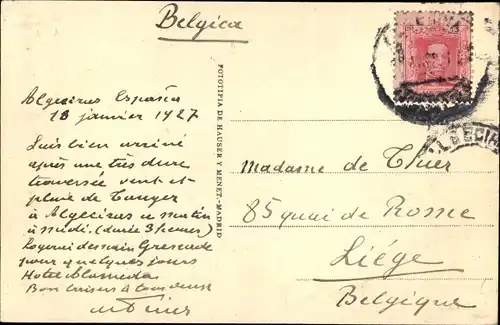 Belgica
Algeciras España
18 janvier 1927
Suis bien arrivé
après une très dure
traversée vent et
pluie de Tanger
à Algeciras ce matin
à midi (durée 3 heures)
demain Grenade
pour quelques jours
Hotel Alameda
Bons baisers à tous deux
FOTOTIPIA DE HAUSER Y MENET.-MADRID
Madame de Thier
85 quai de Rome
Liége
Belgique